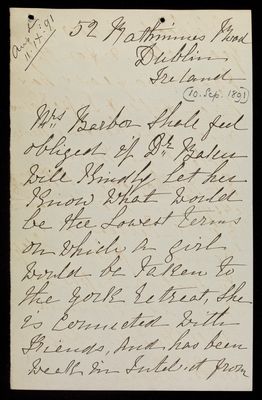 Ansd
11.IX.91
52 Rathmines Road
Dublin
Ireland
(10. Sep. 1891)
Mrs Barbor shall feel
obliged if Dr Baker
will kindly let her
know what would
be the lowest terms
on which a girl
would be taken to
the York Retreat, she
is connected with
Friends, and has been
weak in Intellect from